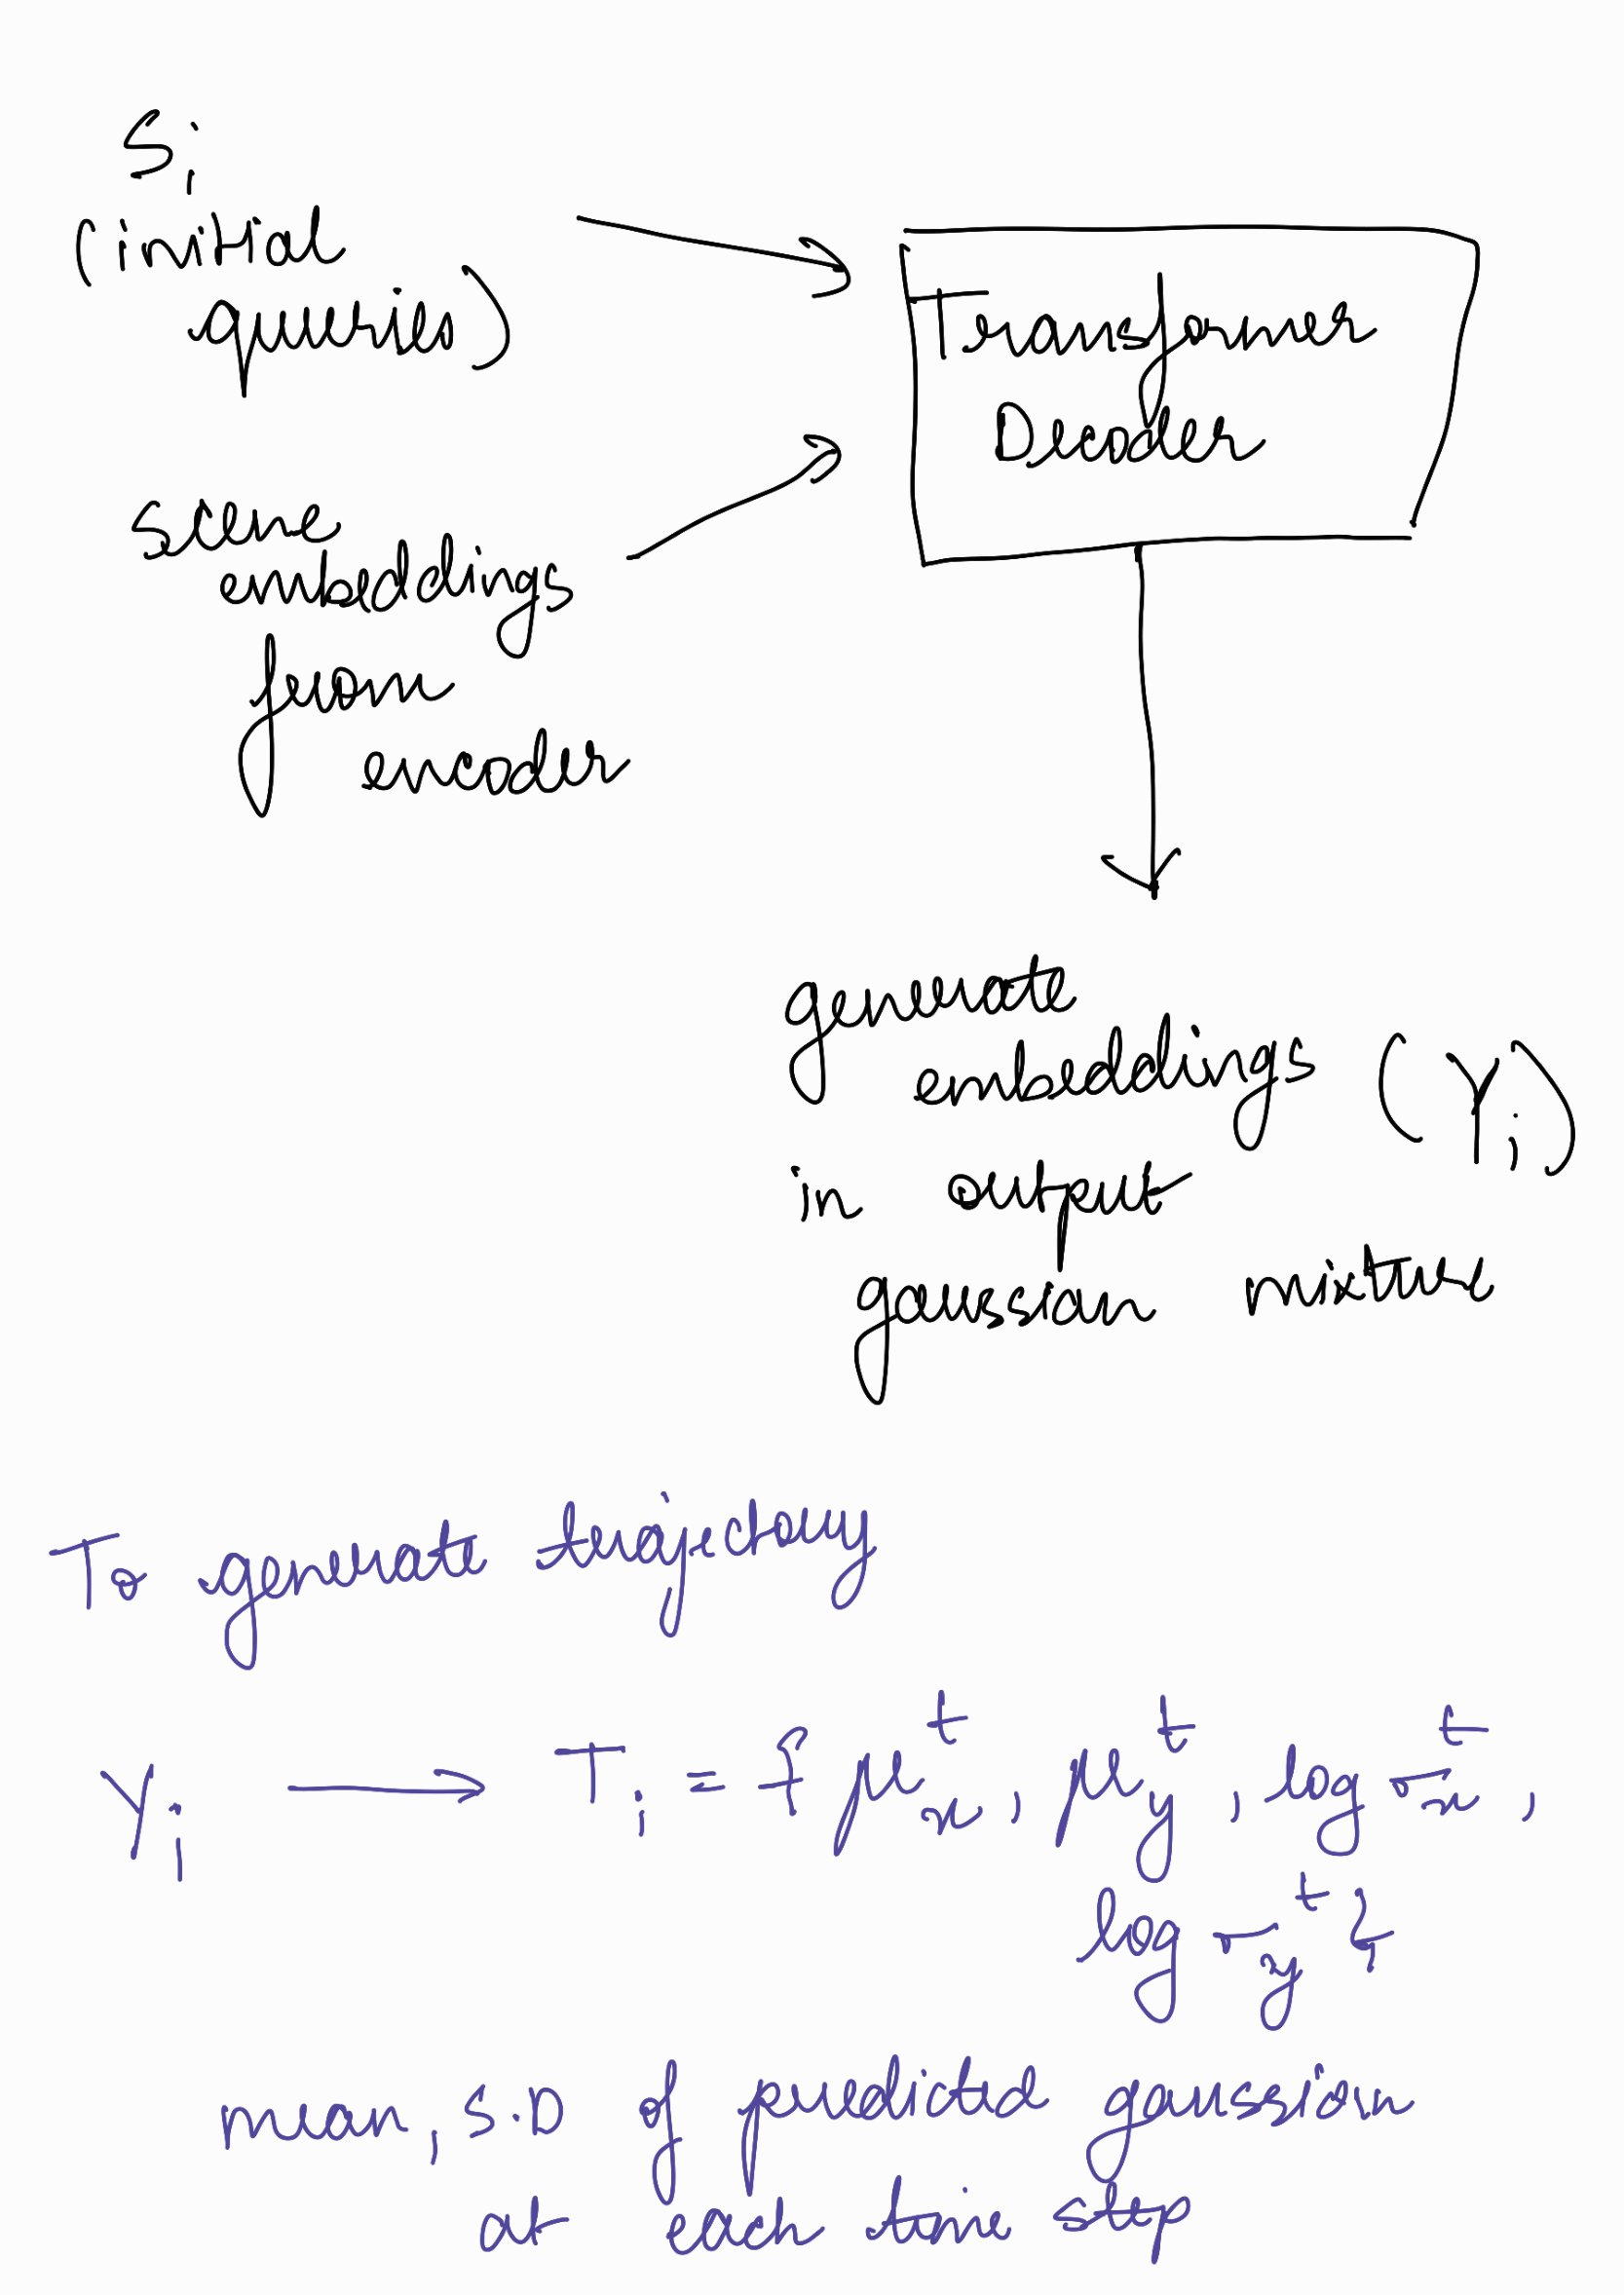 Si
(initial
queries)
Transformer
Decoder
scene
embeddings
from
encoder
generate
embeddings (Yi)
in output
gaussian mixture
To generate trajectory
Yi → Ti = { μ_x^t, μ_y^t, log σ_x^t,
log σ_y^t }
mean, S.D of predicted gaussian
at each time step